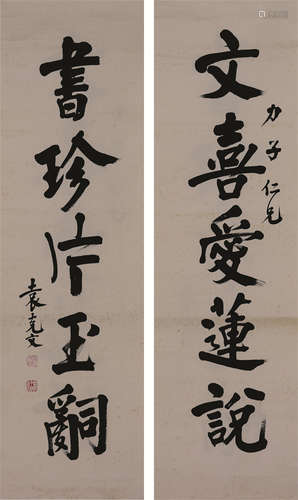 文喜愛蓮說
力子仁兄
書珍片玉嗣
袁克文